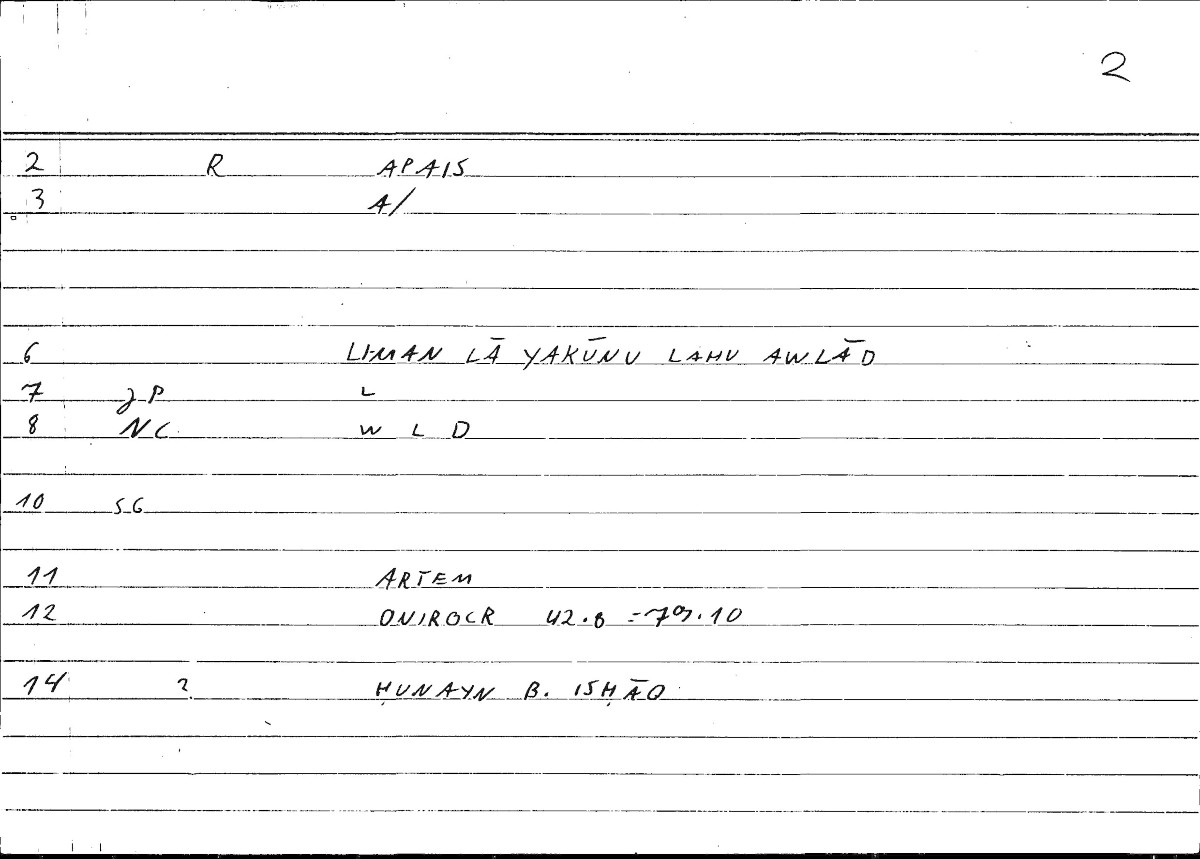 2
2 R APAIS
3 A/
6 LI-MAN LĀ YAKŪNU LAHU AWLĀD
7 JP L
8 NC W L D
10 SG
11 ARTEM
12 ONIROCR 42.8 = 79.10
14 2 ḤUNAYN B. ISḤĀQ